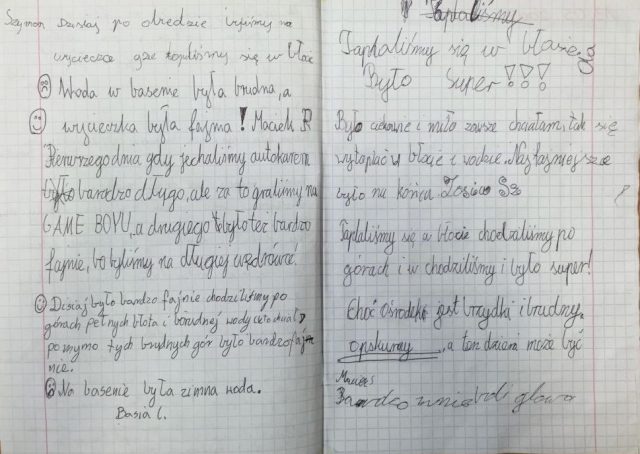 Szymon Dzisiaj po obiedzie byliśmy na
wycieczce gdze topiliśmy się w błocie
Woda w basenie była brudna, a
wycieczka była fajna! Maciek R
Pierwrzego dnia gdy jechaliśmy autokarem
było bardzo długo, ale za to graliśmy na
GAME BOYU, a drugiego było też bardzo
fajnie, bo byliśmy na długiej wędrówce!
Dzisiaj było bardzo fajnie chodziliśmy po
górach pełnych błota i brudnej wody
pomymo tych brudnych gór było bardzo faj-
nie.
Na basenie była zimna woda.
Basia C.
Taplaliśmy
Taplaliśmy się w błocie
Było Super!!!
Było ciekawie i miło zawsze chciałam tak się
wytapiać w błocie i wodzie. Najfajniejsze
było na końcu Zosia Sz
Taplaliśmy się w błocie chodzaliśmy po
górach i w chodziliśmy i było super!
Choć Ośrodek jest brzydki i brudny,
opskurny, a ten dzień może być
Bardzo głowa